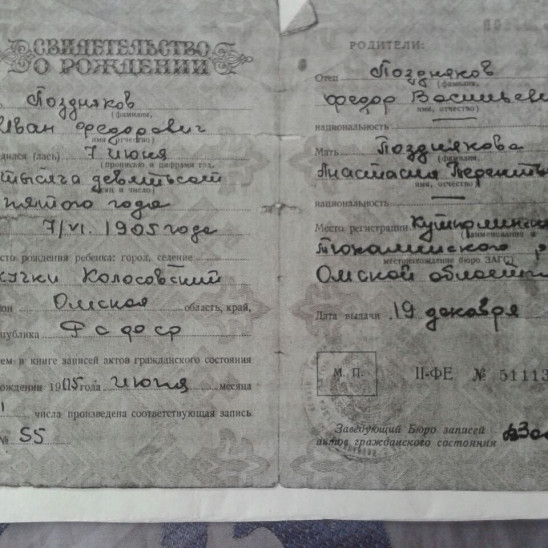 СВИДЕТЕЛЬСТВО
О РОЖДЕНИИ
Поздняков
(фамилия,
Иван Федорович
имя отчество)
дился (лась) 7 июня
(прописью и цифрами год,
тысяча девятьсот
пятого года
7/VI. 1905 года
сто рождения ребенка: город, селение
Колосовский
Омская область, край,
публика
ем в книге записей актов гражданского состояния
рождении 1905 года июня месяца
числа произведена соответствующая запись
№ 55
РОДИТЕЛИ:
Отец Поздняков
(фамилия,
Федор Васильеви
имя, отчество)
национальность —
Мать Позднякова
(фамилия,
Анастасия
имя, отчество)
национальность —
Место регистрации
(наименование и
Тюкалинского
местонахождение бюро ЗАГС)
Омской области
Дата выдачи 19 декабря
М. П. II-ФЕ № 51113
Заведующий Бюро записей
актов гражданского состояния